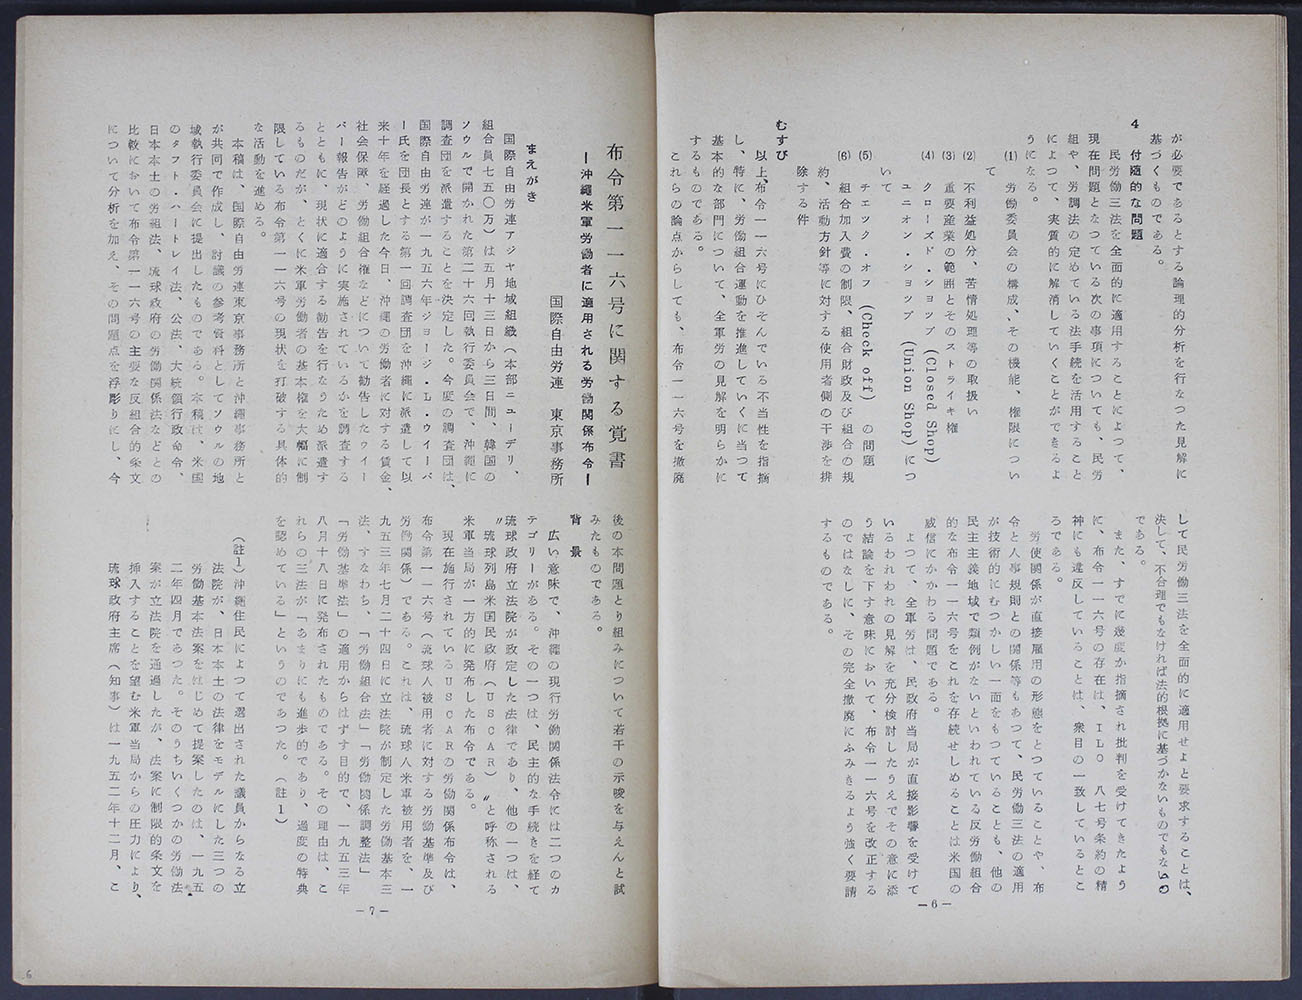 が必要であるとする論理的分析を行なつた見解に
基づくものである。
4　付随的な問題
民労働三法を全面的に適用することによつて、
現在問題となつている次の事項についても、民労
組や、労調法の定めている法手続を活用すること
によつて、実質的に解消していくことができるよ
うになる。
(1)　労働委員会の構成、その機能、権限につい
て
(2)　不利益処分、苦情処理等の取扱い
(3)　重要産業の範囲とそのストライキ権
(4)　クローズド・ショップ (Closed Shop)
ユニオン・ショップ (Union Shop) につ
いて
(5)　チェック・オフ (Check off) の問題
(6)　組合加入費の制限、組合財政及び組合の規
約、活動方針等に対する使用者側の干渉を排
除する件
むすび
以上、布令一一六号にひそんでいる不当性を指摘
し、特に、労働組合運動を推進していくに当つて
基本的な部門について、全軍労の見解を明らかに
するものである。
これらの論点からしても、布令一一六号を撤廃
して民労働三法を全面的に適用せよと要求することは、
決して、不合理でもなければ法的根拠に基づかないものでもないの
である。
また、すでに幾度か指摘され批判を受けてきたよう
に、布令一一六号の存在は、ILO 八七号条約の精
神にも違反していることは、衆目の一致しているとこ
ろである。
労使関係が直接雇用の形態をとつていることや、布
令と人事規則との関係等もあつて、民労働三法の適用
が技術的にむつかしい一面をもつていることも、他の
民主主義地域で類例がないといわれている反労働組合
的な布令一一六号をこれを存続せしめることは米国の
威信にかかわる問題である。
よつて、全軍労は、民政府当局が直接影響を受けて
いるわれわれの見解を充分検討したうえでその意に添
う結論を下す意味において、布令一一六号を改正する
のではなしに、その完全撤廃にふみきるよう強く要請
するものである。
－6－
布令第一一六号に関する覚書
―沖縄米軍労働者に適用される労働関係布令―
国際自由労連　東京事務所
まえがき
国際自由労連アジヤ地域組織（本部ニューデリ、
組合員七五〇万）は五月十三日から三日間、韓国の
ソウルで開かれた第二十六回執行委員会で、沖縄に
調査団を派遣することを決定した。今度の調査団は、
国際自由労連が一九五六年ジョージ・L・ウイーバ
ー氏を団長とする第一回調査団を沖縄に派遣して以
来十年を経過した今日、沖縄の労働者に対する賃金、
社会保障、労働組合権などについて勧告したウィー
バー報告がどのように実施されているかを調査する
とともに、現状に適合する勧告を行なうため派遣す
るものだが、とくに米軍労働者の基本権を大幅に制
限している布令第一一六号の現状を打破する具体的
な活動を進める。
本稿は、国際自由労連東京事務所と沖縄事務所と
が共同で作成し、討議の参考資料としてソウルの地
域執行委員会に提出したものである。本稿は、米国
のタフト・ハートレイ法、公法、大統領行政命令、
日本本土の労組法、琉球政府の労働関係法などとの
比較において布令第一一六号の主要な反組合的条文
について分析を加え、その問題点を浮彫りにし、今
後の本問題とり組みについて若干の示唆を与えんと試
みたものである。
背　景
広い意味で、沖縄の現行労働関係法令には二つのカ
テゴリーがある。その一つは、民主的な手続きを経て
琉球政府立法院が政定した法律であり、他の一つは、
〝琉球列島米国民政府（USCAR）〟と呼称される
米軍当局が一方的に発布した布令である。
現在施行されているUSCARの労働関係布令は、
布令第一一六号（琉球人被用者に対する労働基準及び
労働関係）である。これは、琉球人米軍被用者を、一
九五三年七月二十四日に立法院が制定した労働基本三
法、すなわち、「労働組合法」「労働関係調整法」
「労働基準法」の適用からはずす目的で、一九五三年
八月十八日に発布されたものである。その理由は、こ
れらの三法が「あまりにも進歩的であり、過度の特典
を認めている」というのであつた。（註1）
（註1）沖縄住民によつて選出された議員からなる立
法院が、日本本土の法律をモデルにした三つの
労働基本法案をはじめて提案したのは、一九五
二年四月であつた。そのうちいくつかの労働法
案が立法院を通過したが、法案に制限的条文を
挿入することを望む米軍当局からの圧力により、
琉球政府主席（知事）は一九五二年十二月、こ
－7－
6